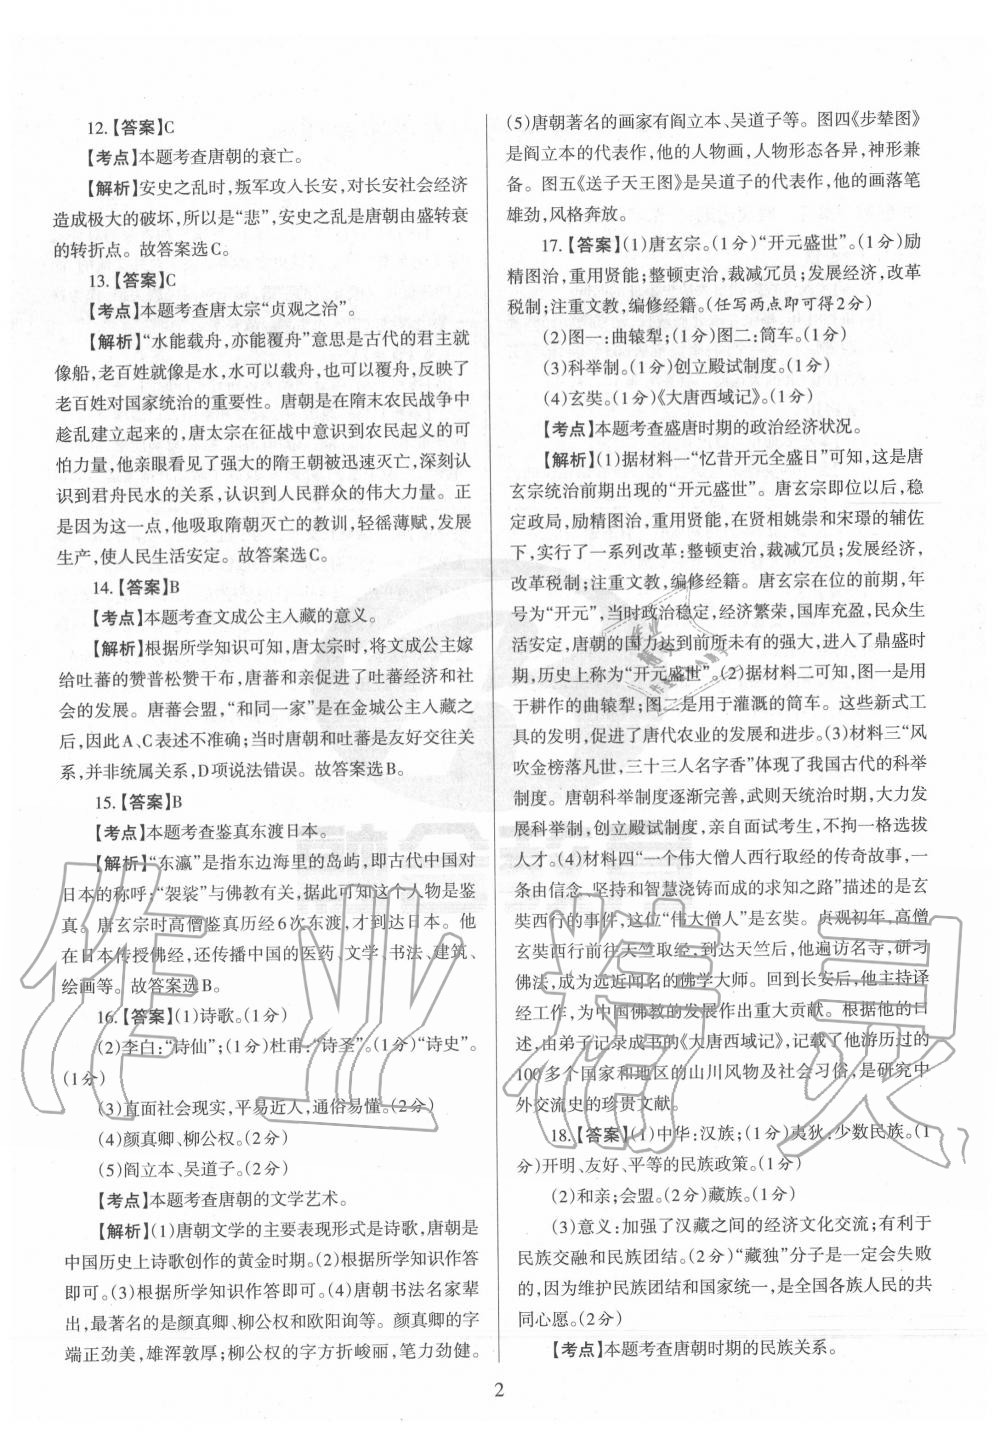 12.【答案】C
【考点】本题考查唐朝的衰亡。
【解析】安史之乱时,叛军攻入长安,对长安社会经济
造成极大的破坏,所以是“悲”,安史之乱是唐朝由盛转衰
的转折点。故答案选C。
13.【答案】C
【考点】本题考查唐太宗“贞观之治”。
【解析】“水能载舟,亦能覆舟”意思是古代的君主就
像船,老百姓就像是水,水可以载舟,也可以覆舟,反映了
老百姓对国家统治的重要性。唐朝是在隋末农民战争中
趁乱建立起来的,唐太宗在征战中意识到农民起义的可
怕力量,他亲眼看见了强大的隋王朝迅速灭亡,深刻认
识到君舟民水的关系,认识到人民群众的伟大力量。正
是因为这一点,他吸取隋朝灭亡的教训,轻徭薄赋,发展
生产,使人民生活安定。故答案选C。
14.【答案】B
【考点】本题考查文成公主入藏的意义。
【解析】根据所学知识可知,唐太宗时,将文成公主嫁
给吐蕃的赞普松赞干布,唐蕃和亲促进了吐蕃经济和社
会的发展。唐蕃会盟,“和同一家”是在金城公主入藏之
后,因此A、C表述不准确;当时唐朝和吐蕃是友好交往关
系,并非统属关系,D项说法错误。故答案选B。
15.【答案】B
【考点】本题考查鉴真东渡日本。
【解析】“东瀛”是指东边海里的岛屿,即古代中国对
日本的称呼;“袈裟”与佛教有关,据此可知这个人物是鉴
真。唐玄宗时高僧鉴真历经6次东渡,才到达日本。他
在日本传授佛经,还传播中国的医药、文学、书法、建筑、
绘画等。故答案选B。
16.【答案】(1)诗歌。(1分)
(2)李白:“诗仙”;(1分)杜甫:“诗圣”。(1分)“诗史”。
(1分)
(3)直面社会现实,平易近人,通俗易懂。(2分)
(4)颜真卿、柳公权。(2分)
(5)阎立本、吴道子。(2分)
【考点】本题考查唐朝的文学艺术。
【解析】(1)唐朝文学的主要表现形式是诗歌,唐朝是
中国历史上诗歌创作的黄金时期。(2)根据所学知识作答
即可。(3)根据所学知识作答即可。(4)唐朝书法名家辈
出,最著名的是颜真卿、柳公权和欧阳询等。颜真卿的字
端正劲美,雄浑敦厚;柳公权的字方折峻丽,笔力劲健。
(5)唐朝著名的画家有阎立本、吴道子等。图四《步辇图》
是阎立本的代表作,他的人物画,人物形态各异,神形兼
备。图五《送子天王图》是吴道子的代表作,他的画落笔
雄劲,风格奔放。
17.【答案】(1)唐玄宗。(1分)“开元盛世”。(1分)励
精图治,重用贤能;整顿吏治,裁减冗员;发展经济,改革
税制;注重文教,编修经籍。(任写两点即可得2分)
(2)图一:曲辕犁;(1分)图二:筒车。(1分)
(3)科举制。(1分)创立殿试制度。(1分)
(4)玄奘。(1分)《大唐西域记》。(1分)
【考点】本题考查盛唐时期的政治经济状况。
【解析】(1)据材料一“忆昔开元全盛日”可知,这是唐
玄宗统治前期出现的“开元盛世”。唐玄宗即位以后,稳
定政局,励精图治,重用贤能,在贤相姚崇和宋璟的辅佐
下,实行了一系列改革:整顿吏治,裁减冗员;发展经济,
改革税制;注重文教,编修经籍。唐玄宗在位的前期,年
号为“开元”,当时政治稳定,经济繁荣,国库充盈,民众生
活安定,唐朝的国力达到前所未有的强大,进入了鼎盛时
期,历史上称为“开元盛世”。(2)据材料二可知,图一是用
于耕作的曲辕犁;图二是用于灌溉的筒车。这些新式工
具的发明,促进了唐代农业的发展和进步。(3)材料三“风
吹金榜落凡世,三十三人名字香”体现了我国古代的科举
制度。唐朝科举制度逐渐完善,武则天统治时期,大力发
展科举制,创立殿试制度,亲自面试考生,不拘一格选拔
人才。(4)材料四“一个伟大僧人西行取经的传奇故事,一
条由信念、坚持和智慧浇铸而成的求知之路”描述的是玄
奘西行的事件,这位“伟大僧人”是玄奘。贞观初年,高僧
玄奘西行前往天竺取经,到达天竺后,他遍访名寺,研习
佛法,成为远近闻名的佛学大师。回到长安后,他主持译
经工作,为中国佛教的发展作出重大贡献。根据他的口
述,由弟子记录成书的《大唐西域记》,记载了他游历过的
100多个国家和地区的山川风物及社会习俗,是研究中
外交流史的珍贵文献。
18.【答案】(1)中华:汉族;(1分)夷狄:少数民族。(1
分)开明、友好、平等的民族政策。(1分)
(2)和亲;会盟。(2分)藏族。(1分)
(3)意义:加强了汉藏之间的经济文化交流;有利于
民族交融和民族团结。(2分)“藏独”分子是一定会失败
的,因为维护民族团结和国家统一,是全国各族人民的共
同心愿。(2分)
【考点】本题考查唐朝时期的民族关系。
2
作业精灵